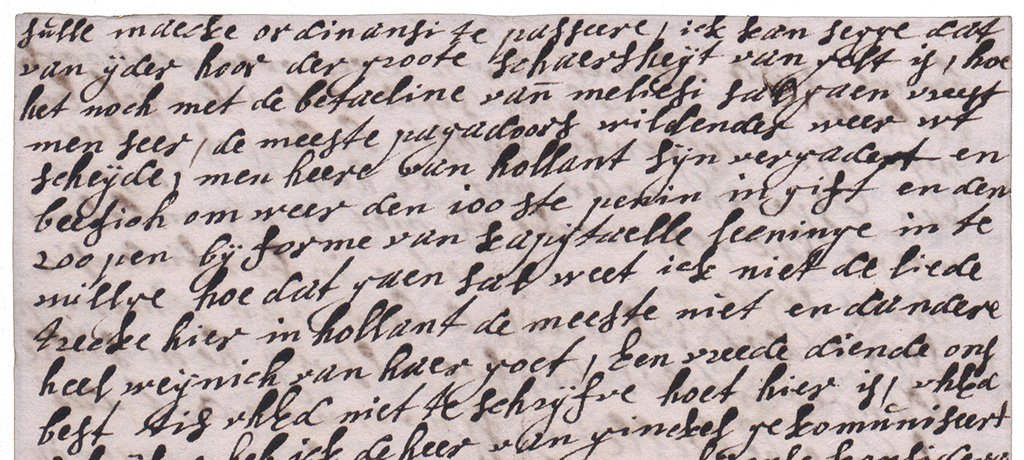 sulle maecke ordinansi te passeere, ick kan segge dat
van yder hoor der groote schaersheyt van gelt is, hoe
het noch met de betaeline van meliesi sal gaen vreest
men seer, de meeste pagadoors wildender weer wt
scheyde, men heere van hollant syn vergadert en
beesich om weer den 100 ste penin in gift en den
200 pen by forme van kapytaelle leeninge in te
willge hoe dat gaen sal weet ick niet de liede
trecke hier in hollant de meeste niet en dandere
heel weynich van haer goet, Een vreede diende ons
best tis vhEd niet te schryfve hoet hier is, vhEd
heb ick de heer van ginckel gekomuniseert